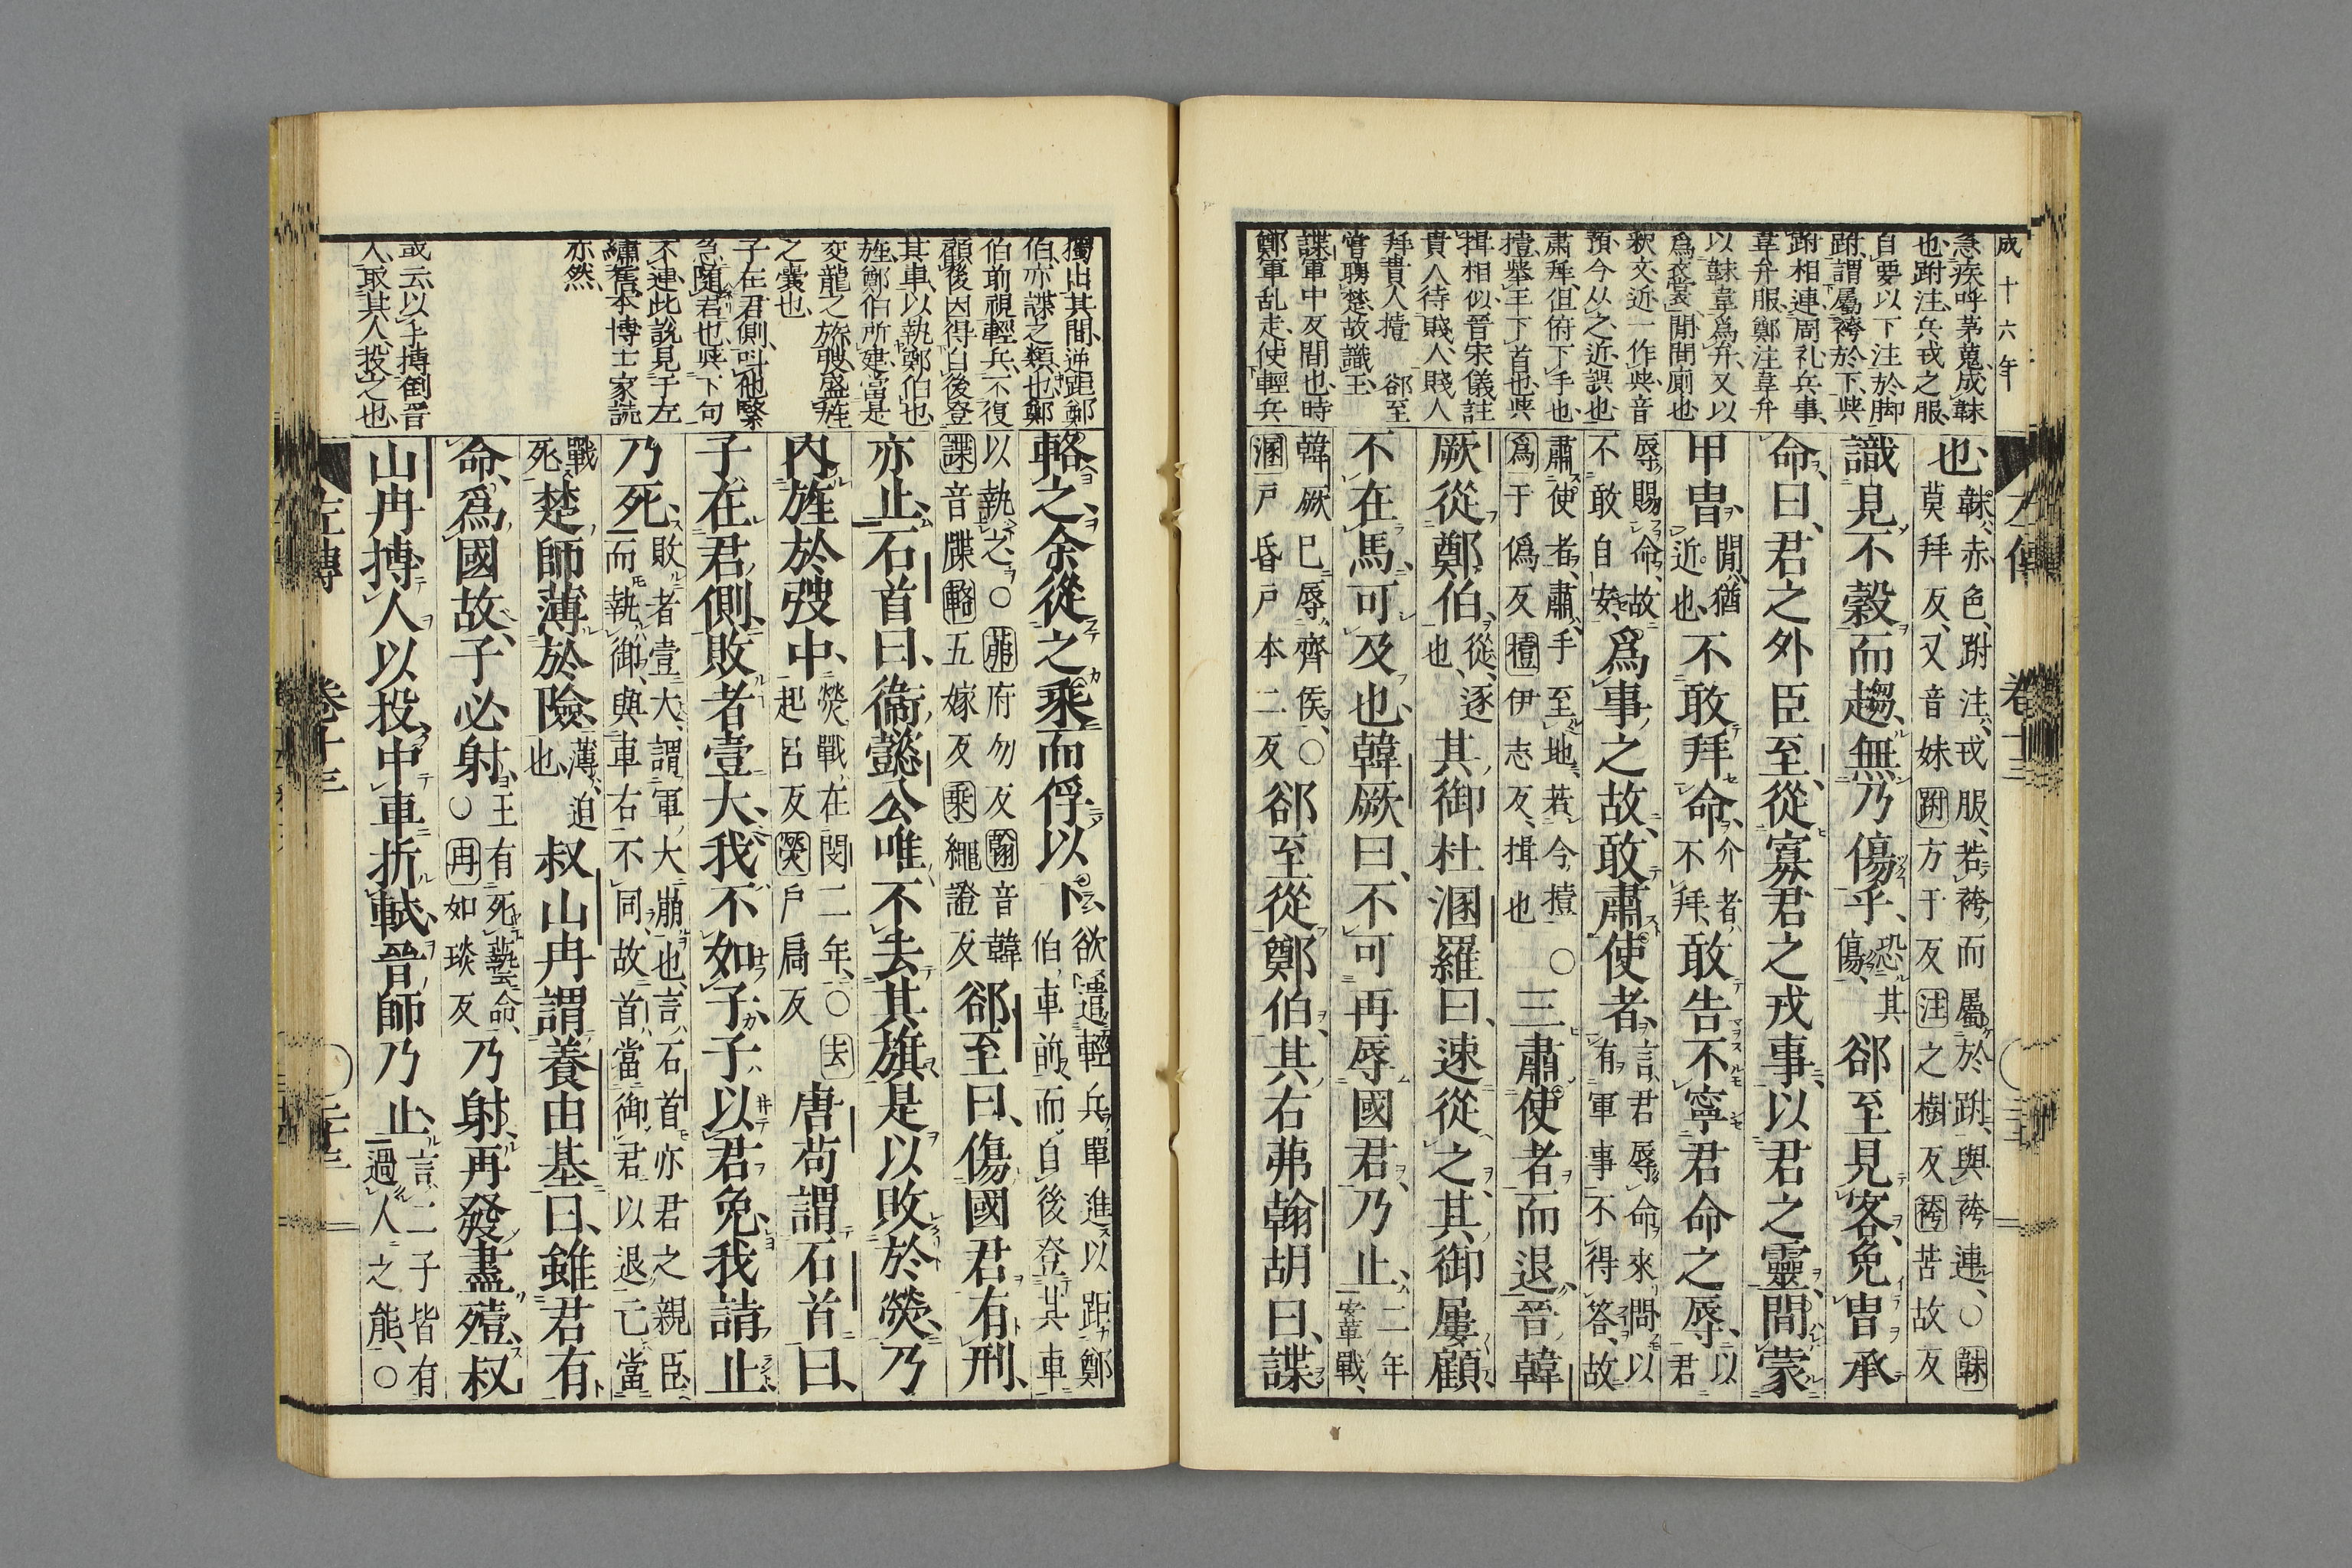 成十六年
急疾呼茅蒐成韎
也跗注兵戎之服
自要以下注於脚
跗謂屬袴於下與
跗相連周礼兵事
韋弁服鄭注韋弁
以韎韋爲弁又以
爲衣裳 閒間廁也
釈文近一作與音
預今从之近誤也
肅拜但俯下手也
撎舉王下首也與
揖相似晉宋儀註
貴人待賤人賤人
拜貴人撎 郤至
嘗聘楚故識王
諜軍中反間也時
鄭軍乱走使輕兵
也韎赤色跗注戎服若袴而屬於跗與袴連〇韎莫拜反又音妹跗方于反注之樹反袴苦故反
識見不穀而趨無乃傷乎恐其傷郤至見客免冑承
命曰君之外臣至從寡君之戎事以君之靈間蒙
甲冑閒猶近也不敢拜命介者不拜敢告不寧君命之辱以君
辱賜命故不敢自安爲事之故敢肅使者言君辱命來問以有軍事不得答故
肅使者肅手至地若今撎〇爲于僞反撎伊志反揖也三肅使者而退晉韓
厥從鄭伯從逐也其御杜溷羅曰速從之其御屢顧
不在馬可及也韓厥曰不可再辱國君乃止二年鞌戰
韓厥已辱齊侯〇溷戸昏戸本二反郤至從鄭伯其右茀翰胡曰諜
獨出其間逆距鄭
伯亦諜之類也鄭
伯前視輕兵不復
顧後因得自後登
其車以執鄭伯也
旌鄭伯所建當是
交龍之旂弢盛旌
之囊也
子在君側叫他緊
急隨君也與下句
不連此說見于左
繡舊本博士家読
亦然
或云以手搏倒晉
人取其人投之也
輅之余從之乘而俘以下欲遣輕兵單進以距鄭伯車前而自後登其車
以執之〇茀府勿反翰音韓諜音牒輅五嫁反乘繩證反郤至曰傷國君有刑
亦止石首曰衞懿公唯不去其旗是以敗於熒乃
內旌於弢中熒戰在閔二年〇去起呂反熒戸扃反唐苟謂石首曰
子在君側敗者壹大我不如子子以君免我請止
乃死敗者壹大謂軍大崩也言石首亦君之親臣而執御與車右不同故首當御君以退己當
戰死楚師薄於險薄迫也叔山冉謂養由基曰雖君有
命爲國故子必射王有死藝命〇冉如琰反乃射再發盡殪叔
山冉搏人以投中車折軾晉師乃止言二子皆有過人之能〇
左傳
卷十三